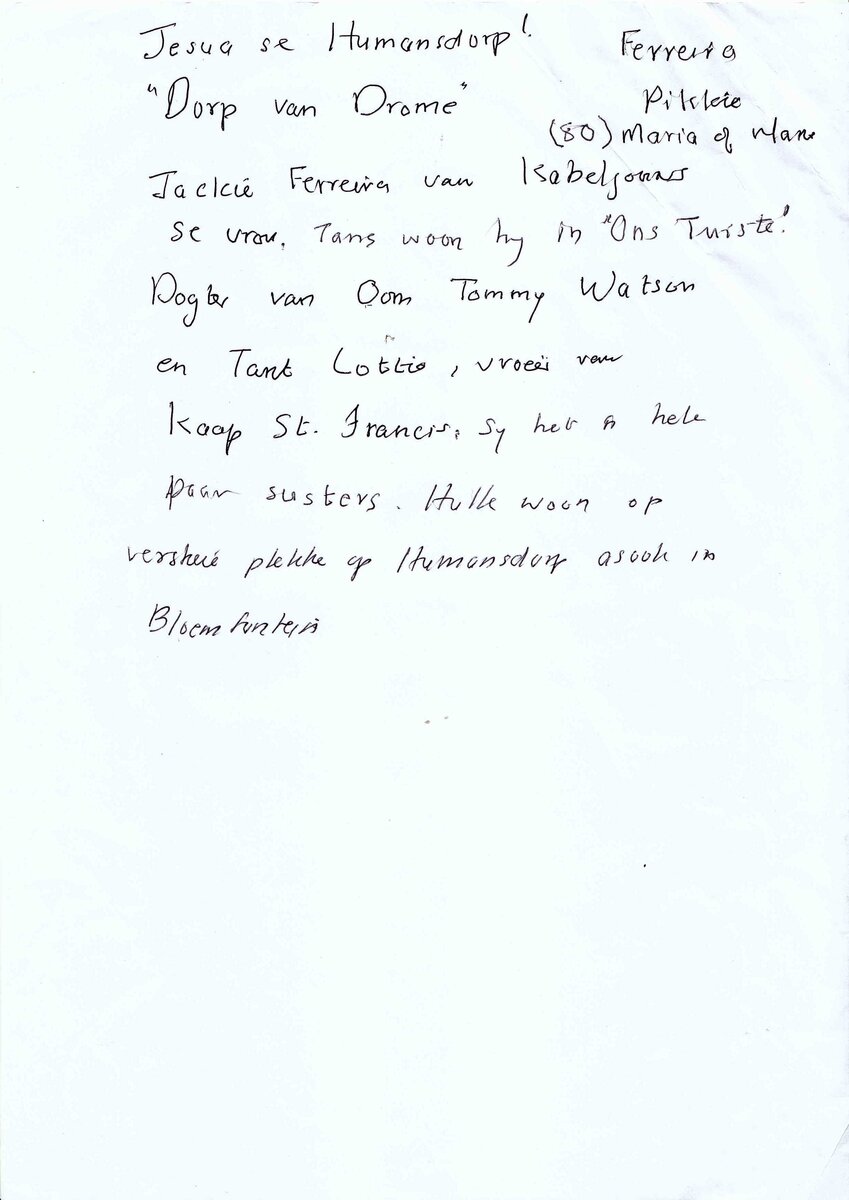 Jesua se Humansdorp!
"Dorp van Drome"
Ferreira
Pikkie
(80) Maria of
Jackie Ferreira van Kabeljouws
se vrou. Tans woon hy in "Ons Tuiste!
Dogter van Oom Tommy Watson
en Tant Lottie, vroeër van
Kaap St. Francis. Sy het 'n hele
paar susters. Hulle woon op
verskeie plekke op Humansdorp asook in
Bloemfontein